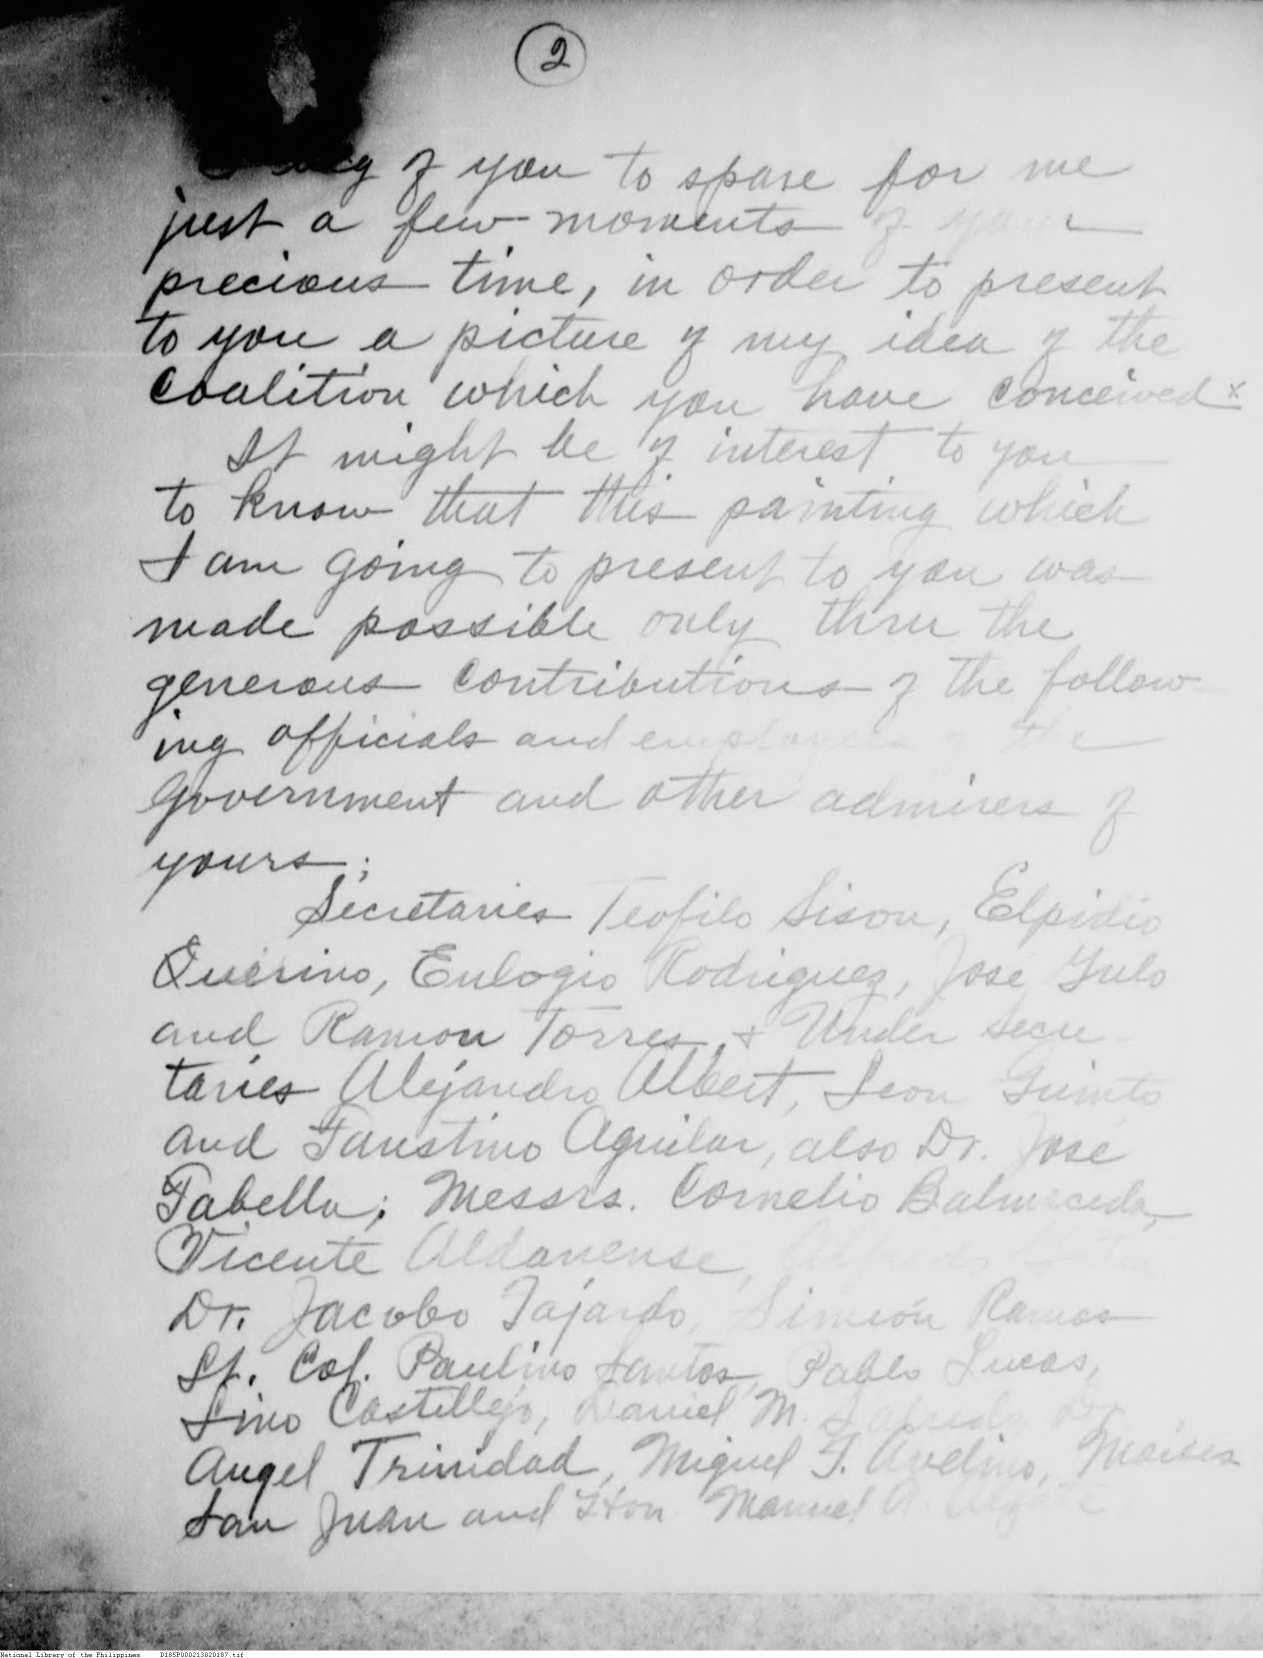 2
of you to spare for me
just a few moments of your
precious time, in order to present
to you a picture of my idea of the
Coalition which you have conceived x
It might be of interest to you
to know that this painting which
I am going to present to you was
made possible only thru the
generous contributions of the follow
ing officials and employees of the
Government and other admirers of
yours;
Secretaries Teofilo Sison, Elpidio
Quirino, Eulogio Rodriguez, Jose Yulo
and Ramon Torres, + Under Secre
taries Alejandro Albert, Leon Guinto
and Faustino Aguilar, also Dr. José
Fabella; Messrs. Cornelio Balmaceda,
Vicente Aldanense,
Dr. Jacobo Fajardo, Simeón Ramos
Lt. Col. Paulino Santos, Pablo Lucas,
Lino Castillejo, Daniel M. Dr.
Angel Trinidad, Miguel F. Avelino, Moises
San Juan and Hon. Manuel A.
National Library of the Philippines D185P000213820187.tif